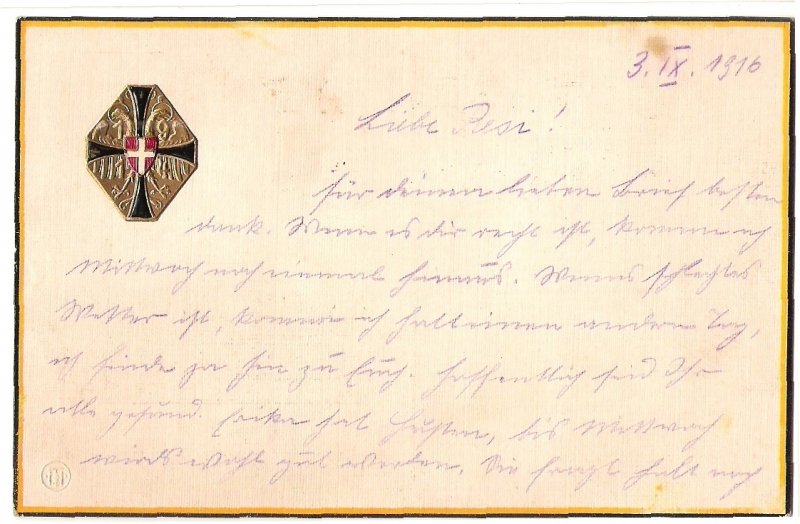 3. IX. 1916
Liebe Resi!
Für deinen lieben Brief besten
Dank. Wenn es dir recht ist, komme ich
Mittwoch noch einmal hinaus. Wenns schlechtes
Wetter ist, komme ich halt einen andern Tag,
ich finde ja hin zu Euch. Hoffentlich seid Ihr
alle gesund. Erika hat Husten, bis Mittwoch
wirds wohl gut werden. Sie fragt halt noch